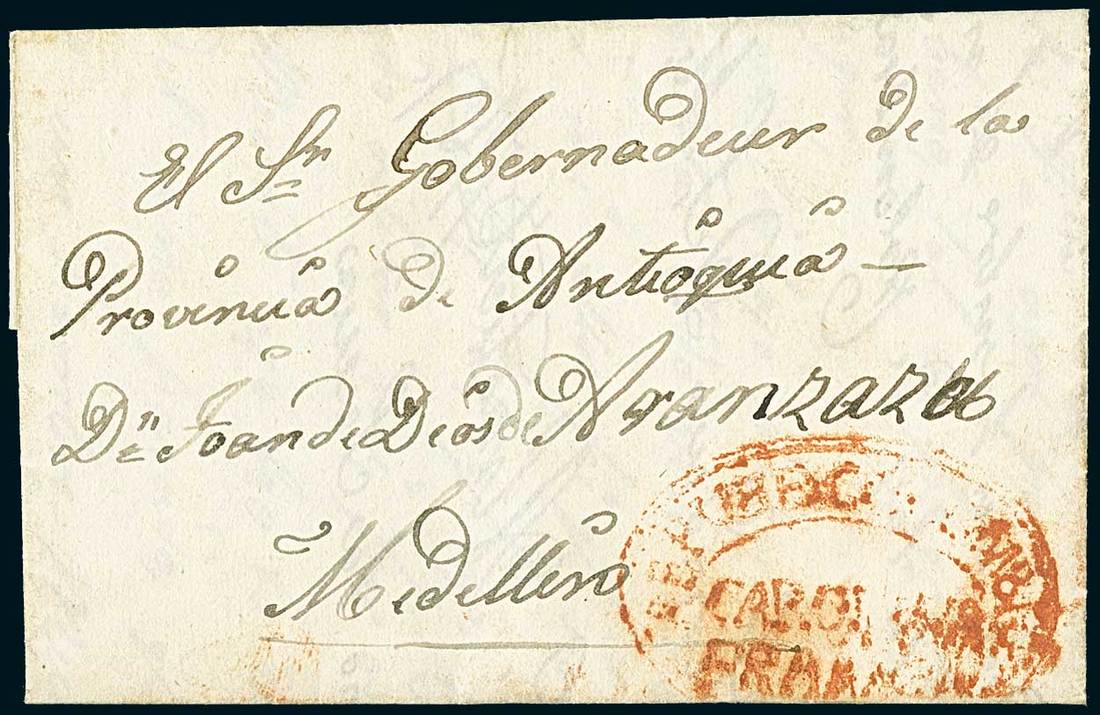 El Sr Gobernadeur de la
Provincia de Antioquia —
Dn Joan de Dios de Aranzazu
Medellin
CAROLINA
FRANCA